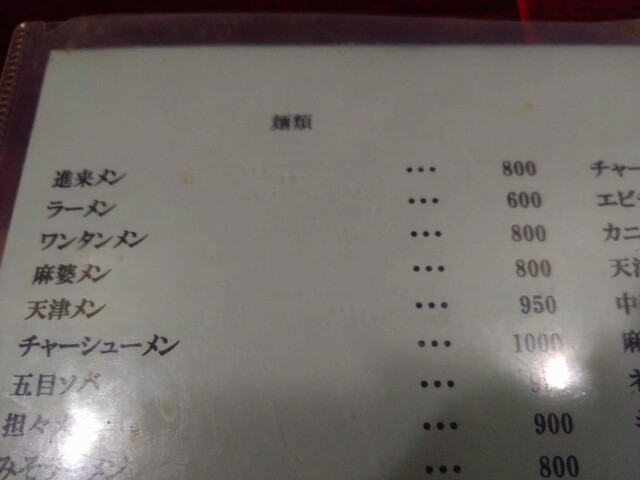 麺類
進来メン ･･･ 800
ラーメン ･･･ 600
ワンタンメン ･･･ 800
麻婆メン ･･･ 800
天津メン ･･･ 950
チャーシューメン ･･･ 1000
五目ソバ ･･･
担々 ･･･ 900
みそラーメン ･･･ 800
チャー
エビ
カニ
天津
中
麻
ネ